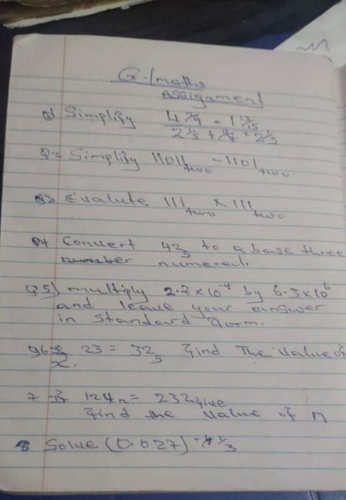 G/maths
Assignment
Q1 Simplify 4 7/9 - 1 13/15
2 1/3 + 4/7 × 2 1/3
Q2 Simplify 11011two - 1101two
Q3 Evaluate 111two × 111two
Q4 Convert 425 to a base three
numeral.
Q5) multiply 2.7×10⁻⁴ by 6.3×10⁶
and leave your answer
in Standard form.
Q6 23 = 325 find The value of
x.
7 If 124n = 232five
find the value of n
8 Solve (0.027)